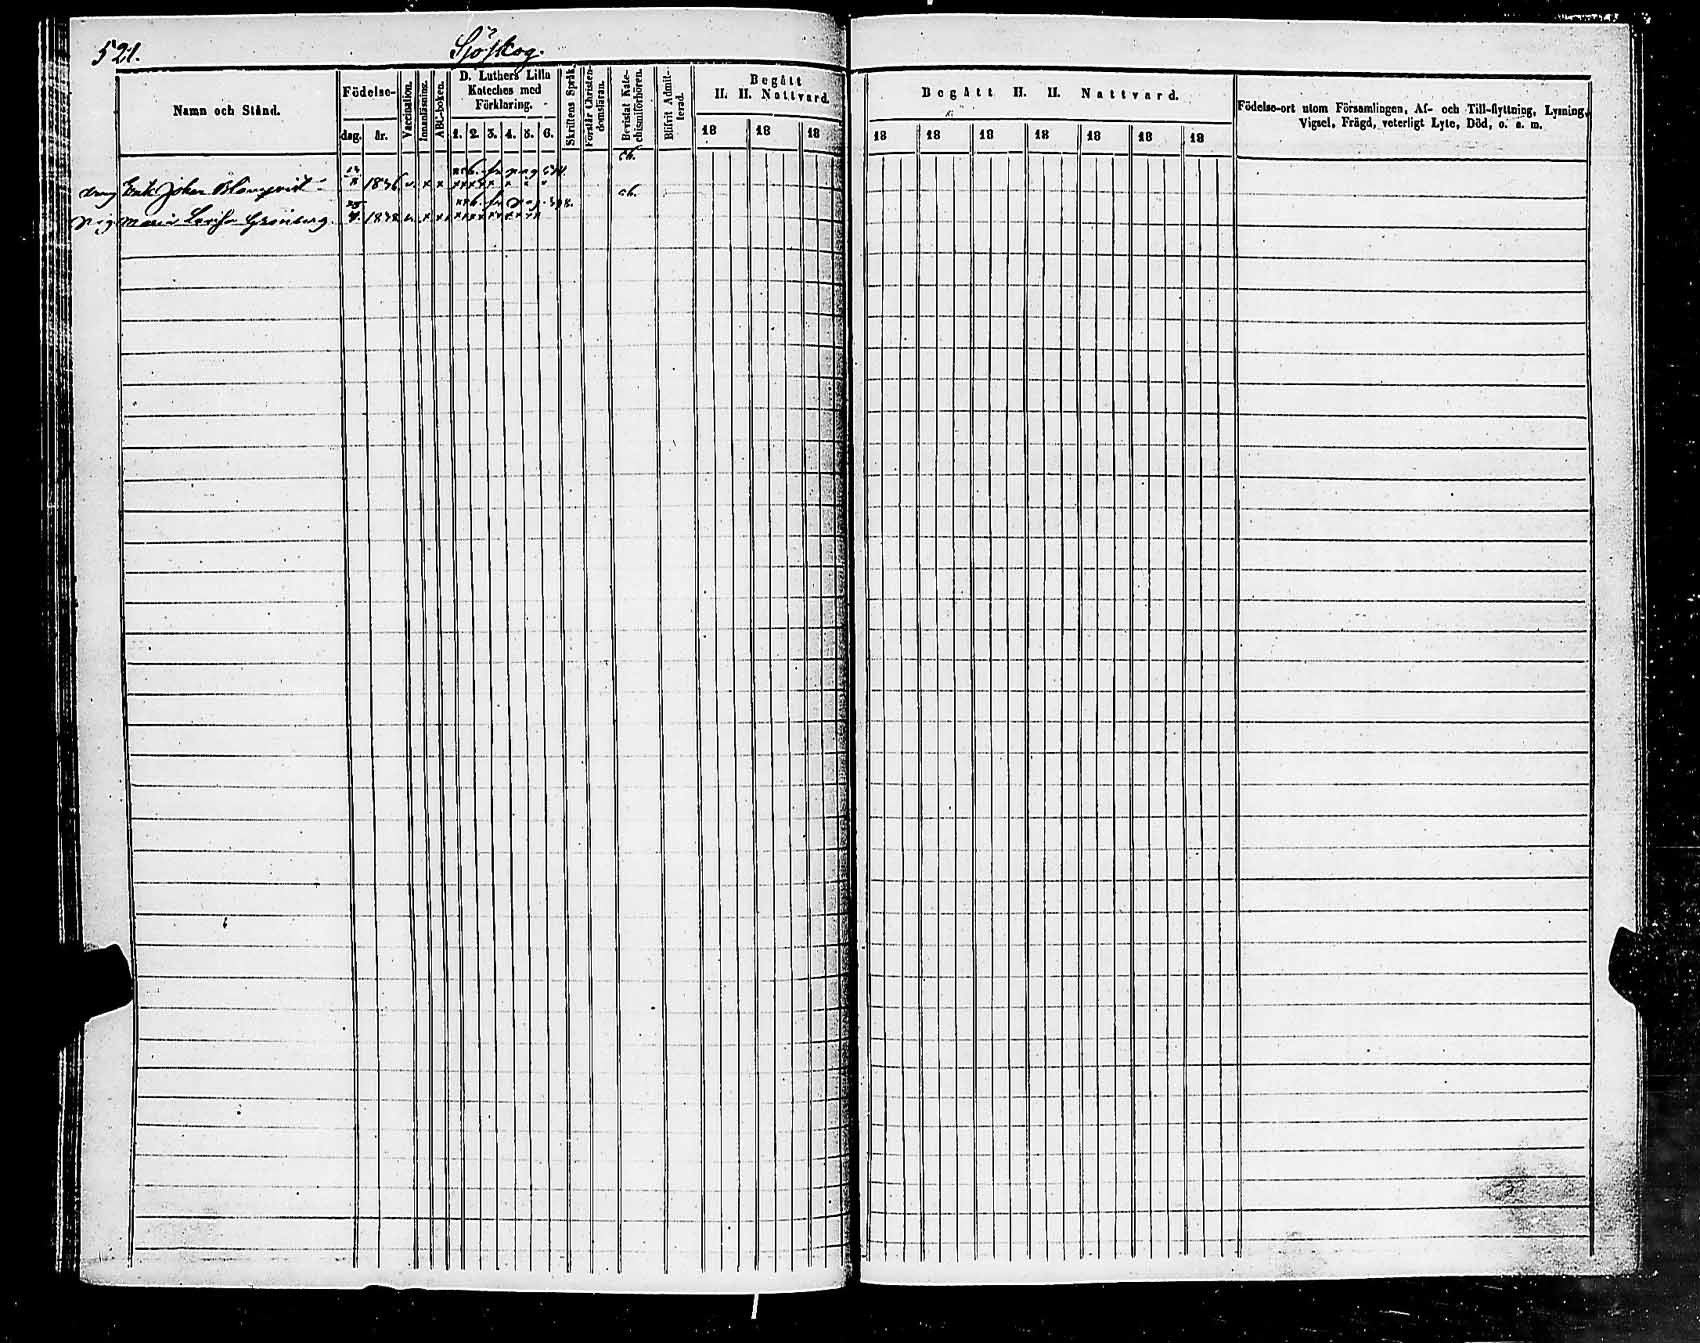 521.
Sjöskog.
Namn och Stånd.
Födelse-
dag. år.
Vaccination.
Innanläsning.
ABC-boken.
D. Luthers Lilla
Kateches med
Förklaring.
1. 2. 3. 4. 5. 6.
Skriftens Språk.
Förstår Christen-
domsläran.
Bevistat Kate-
chismiförhören.
Blifvit Admit-
terad.
Begått
H. H. Nattvard.
18 18 18
Begått H. H. Nattvard.
18 18 18 18 18 18 18
Födelse-ort utom Församlingen, Af- och Till-flyttning, Lysning,
Vigsel, Frägd, veterligt Lyte, Död, o. s. m.
Erik Johan Blomqvist 1836
Pig Maria Grönberg 1838